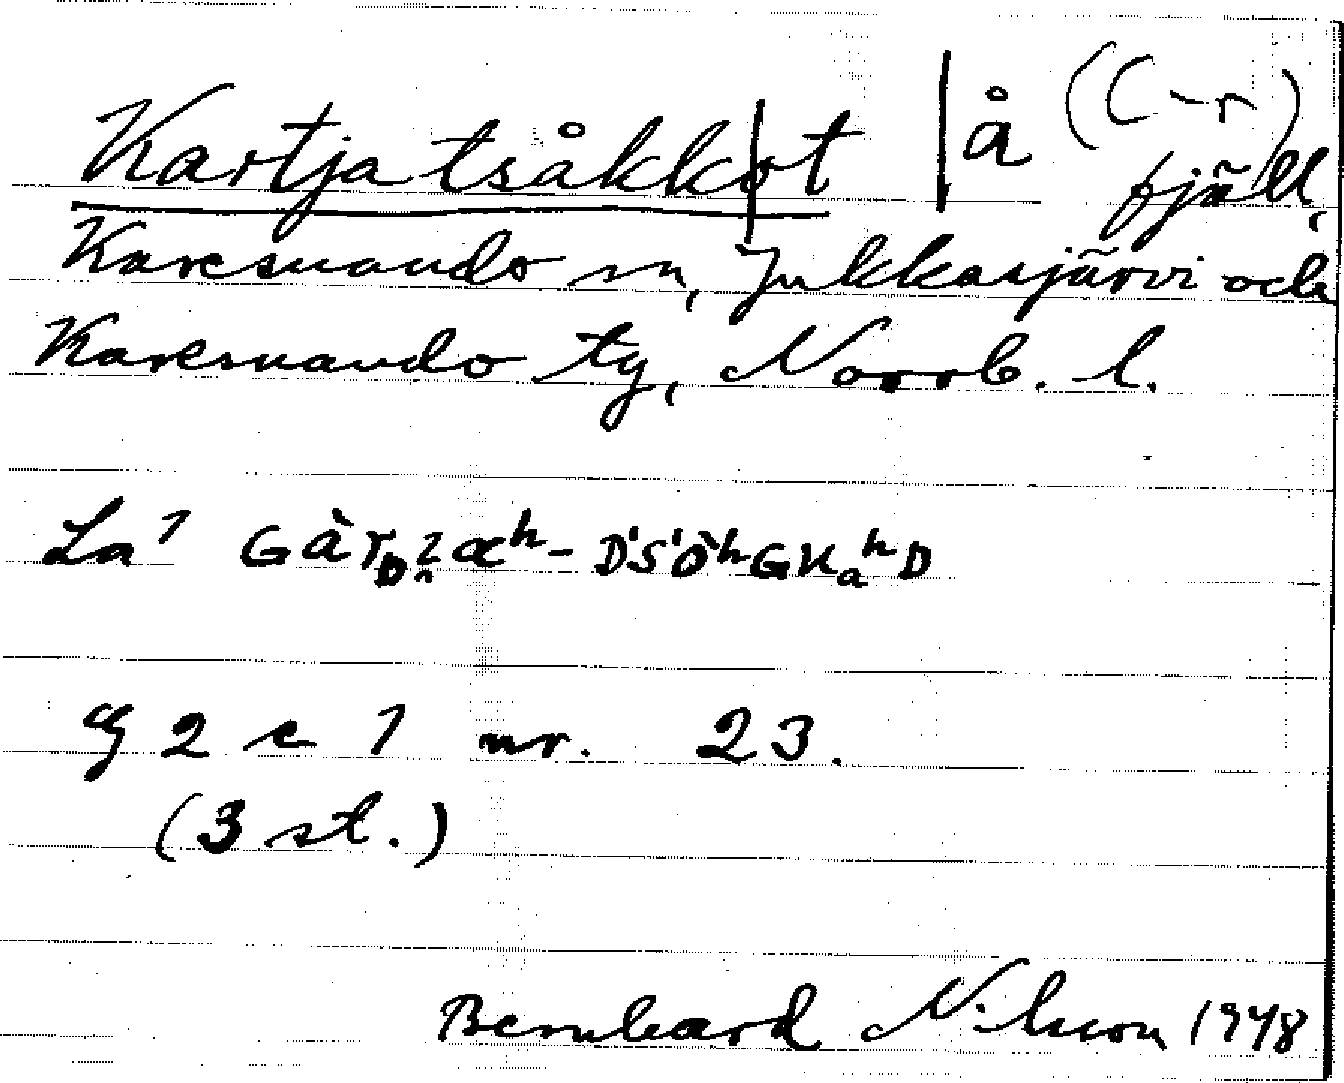 Kartjatsåkk|ot | å (C-r)
fjäll,
Karesuando sn, Jukkasjärvi och
Karesuando tg, Norrb. l.
La 1
G 2 c 1 nr. 23.
(3 st.)
Bernhard Nilsson 1948